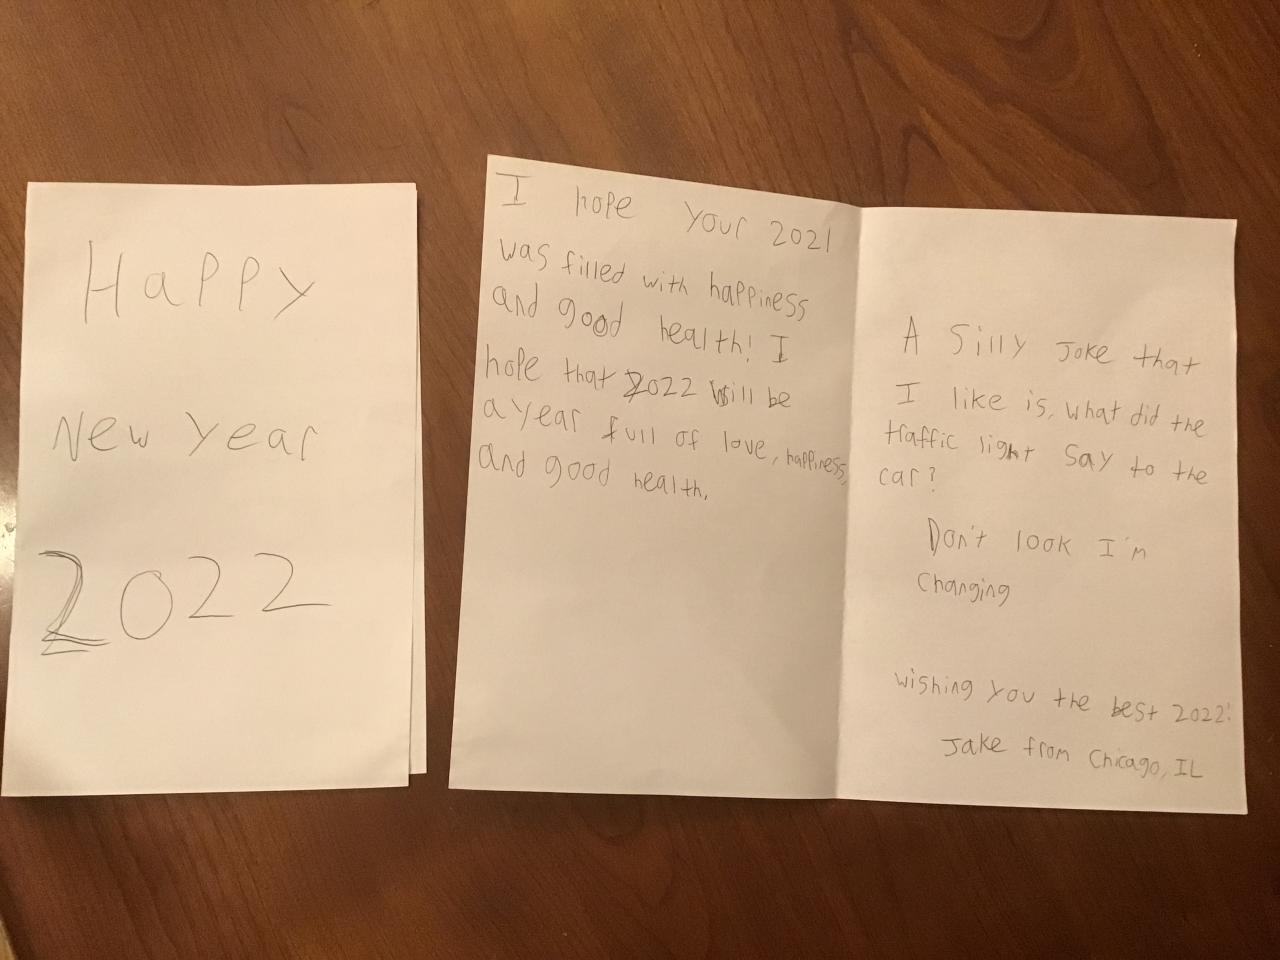 Happy
New Year
2022
I hope your 2021
was filled with happiness
and good health! I
hope that 2022 will be
a year full of love, happiness,
and good health.
A Silly Joke that
I like is, what did the
traffic light say to the
car?
Don't look I'm
Changing
wishing you the best 2022!
Jake from Chicago, IL